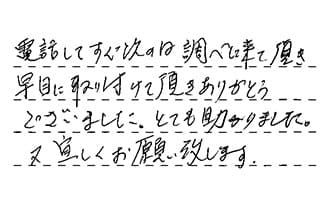 電話してすぐ次の日調べに来て頂き
早目に取り付けて頂きありがとう
ございました。とても助かりました。
又宜しくお願い致します。